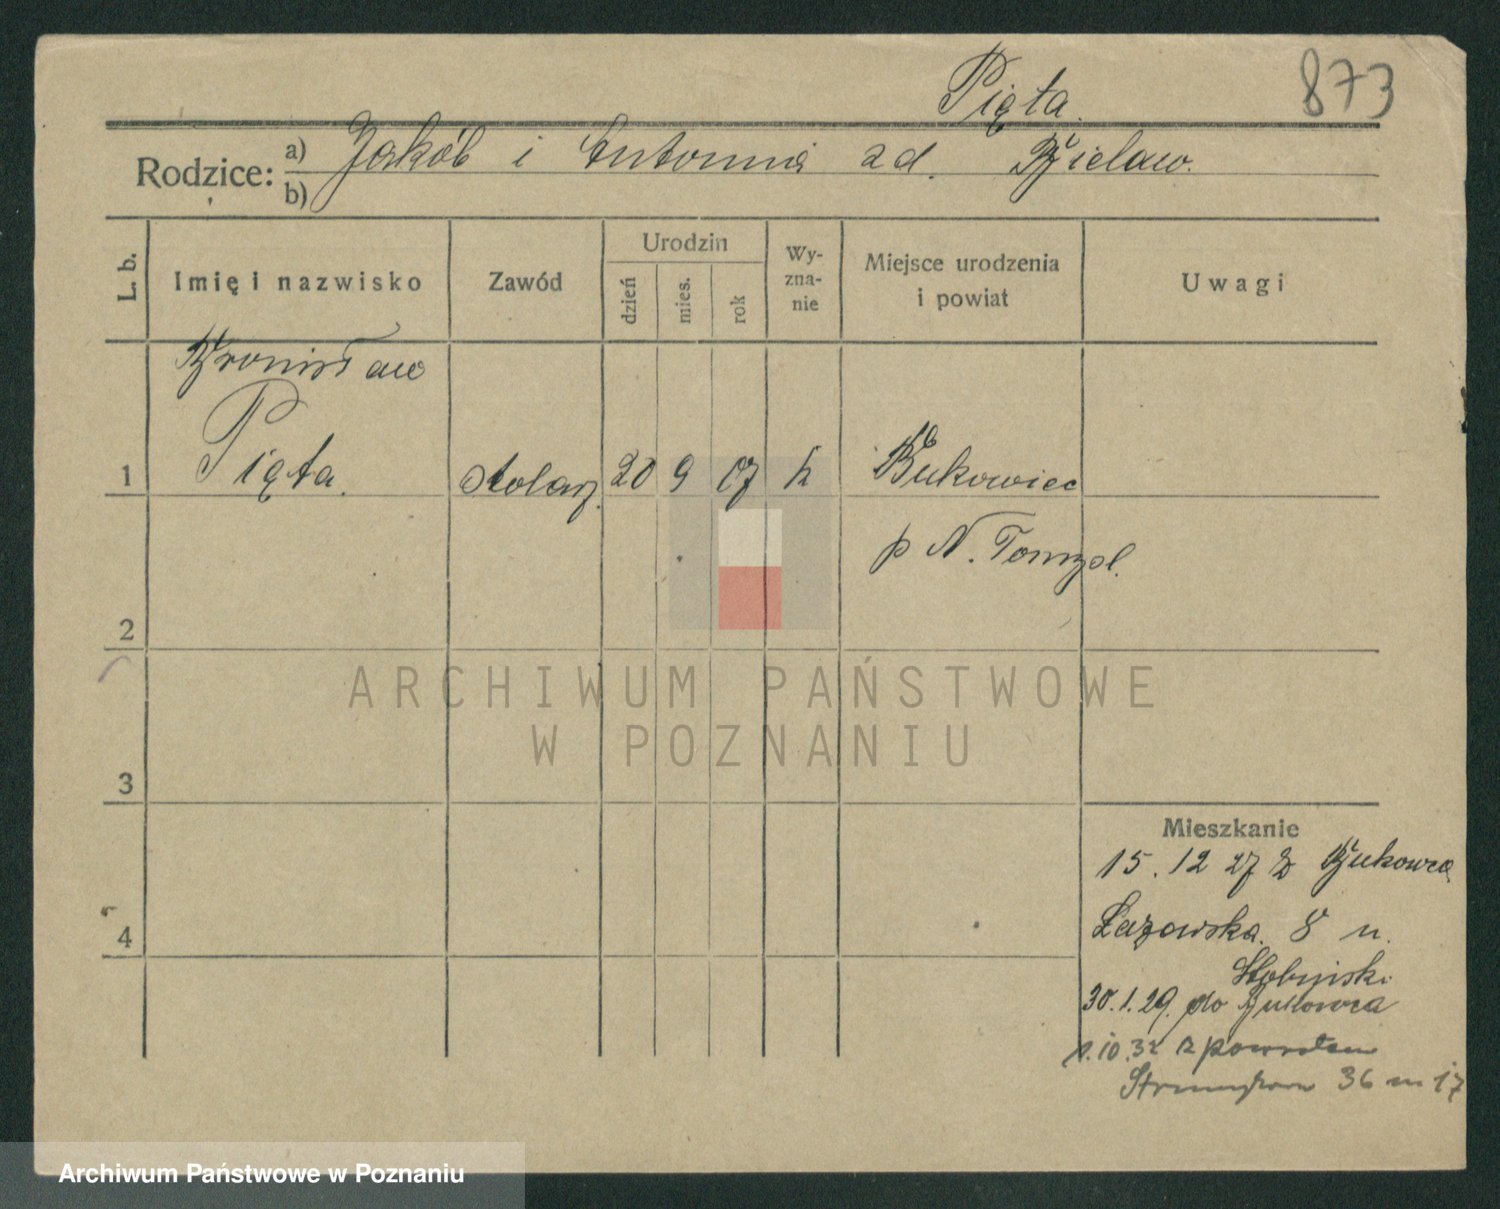 873
Pięta.
Rodzice: a) Jakób i Antonina zd. Bielaw.
b)
L. b.
Imię i nazwisko
Zawód
Urodzin
dzień
mies.
rok
Wy-
zna-
nie
Miejsce urodzenia
i powiat
Uwagi
Bronisław
1 Pięta. stolarz. 20 9 07 k Bukowiec
p N. Tomysl.
2
3
4
Mieszkanie
15. 12 27 z Bukowca
Łazowska. 8 u.
30.1.29. do Bukowca
1.10.32 z powrotem
36 m 17
ARCHIWUM PAŃSTWOWE
W POZNANIU
Archiwum Państwowe w Poznaniu